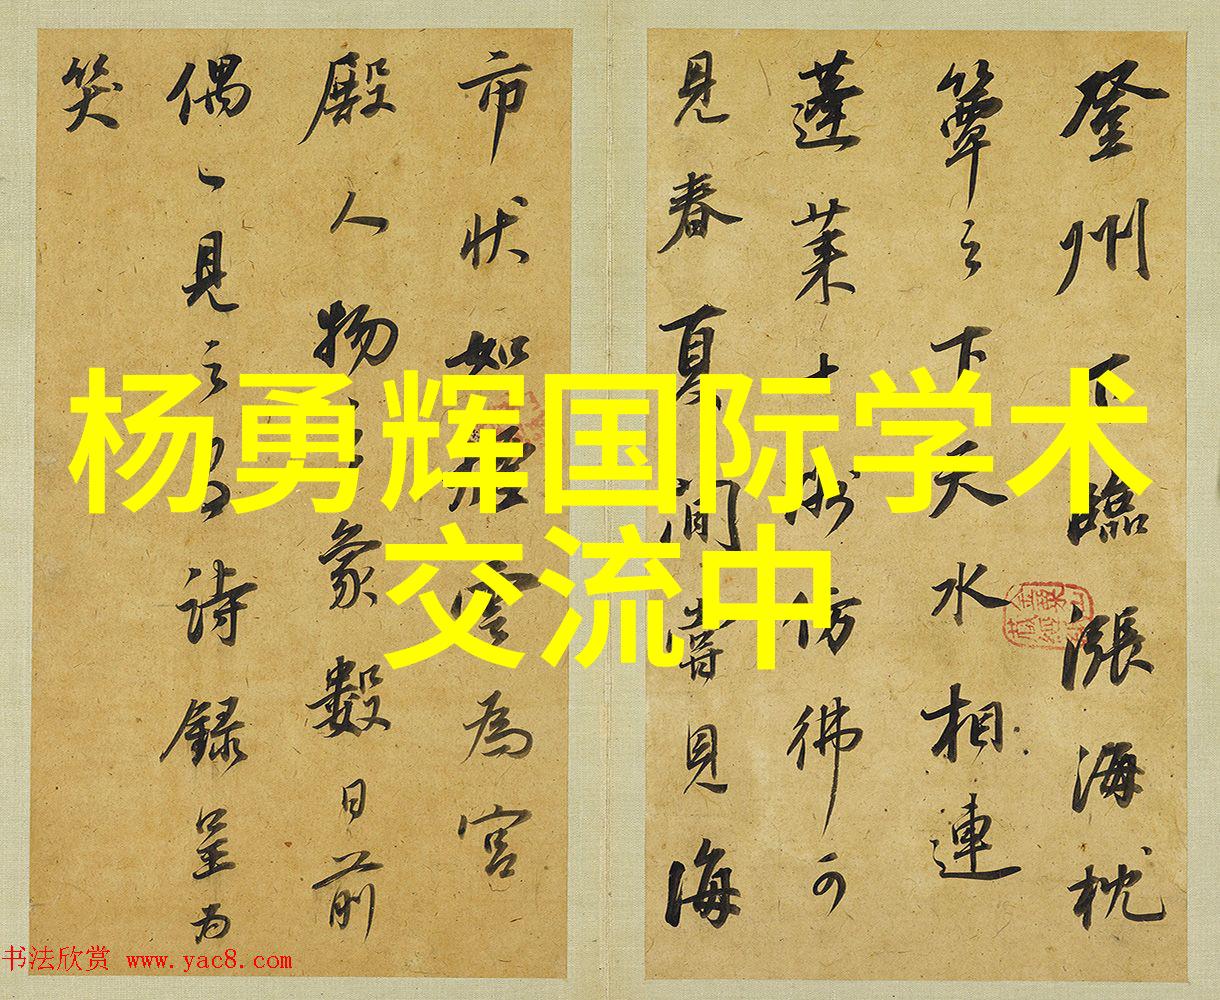 杨勇辉国际学术
交流中
登州下臨漲海枕
簟之下天水相連
蓬莱十洲仿彿可
見春夏間嘗見海
市状如為宫
殿人物之象數日前
偶見之詩録呈为
笑
书法欣赏 www.yac8.com